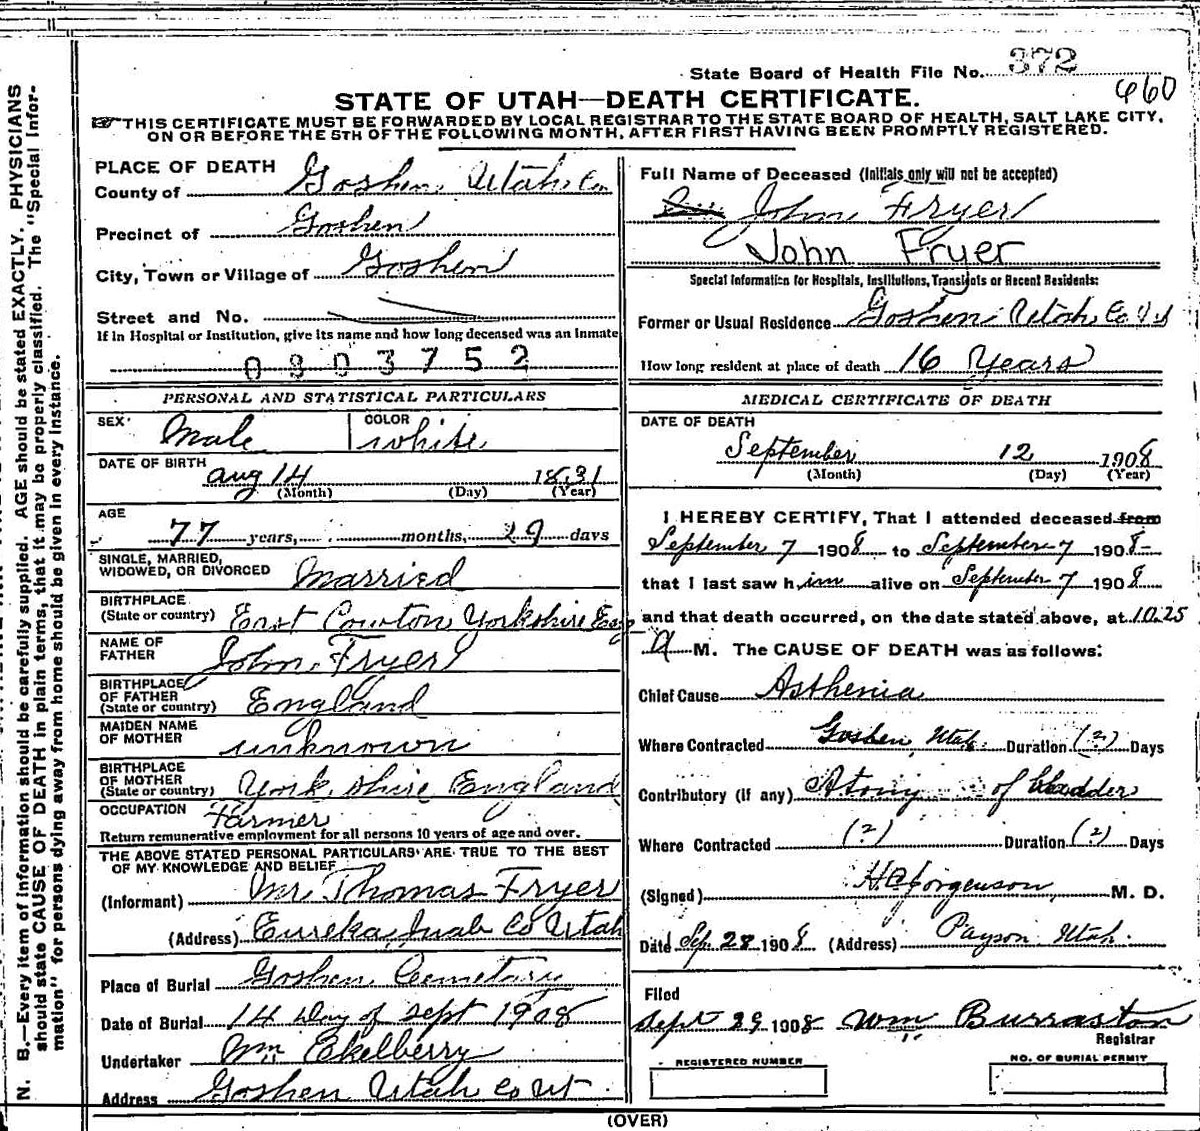 State Board of Health File No. 372
660
STATE OF UTAH—DEATH CERTIFICATE.
THIS CERTIFICATE MUST BE FORWARDED BY LOCAL REGISTRAR TO THE STATE BOARD OF HEALTH, SALT LAKE CITY,
ON OR BEFORE THE 5TH OF THE FOLLOWING MONTH, AFTER FIRST HAVING BEEN PROMPTLY REGISTERED.
N. B.—Every item of information should be carefully supplied. AGE should be stated EXACTLY. PHYSICIANS
should state CAUSE OF DEATH in plain terms, that it may be properly classified. The "Special Infor-
mation" for persons dying away from home should be given in every instance.
PLACE OF DEATH
County of Goshen Utah Co
Precinct of Goshen
City, Town or Village of Goshen
Street and No.
If in Hospital or Institution, give its name and how long deceased was an inmate
0803752
PERSONAL AND STATISTICAL PARTICULARS
SEX Male COLOR white
DATE OF BIRTH aug 14 1831
(Month) (Day) (Year)
AGE
77 years, months, 29 days
SINGLE, MARRIED,
WIDOWED, OR DIVORCED Married
BIRTHPLACE
(State or country) East Cowton Yorkshire Eng
NAME OF
FATHER John Fryer
BIRTHPLACE
OF FATHER
(State or country) England
MAIDEN NAME
OF MOTHER unknown
BIRTHPLACE
OF MOTHER
(State or country) York shire England
OCCUPATION Farmer
Return remunerative employment for all persons 10 years of age and over.
THE ABOVE STATED PERSONAL PARTICULARS ARE TRUE TO THE BEST
OF MY KNOWLEDGE AND BELIEF
(Informant) Mr Thomas Fryer
(Address) Eureka Juab Co Utah
Place of Burial Goshen Cemetary
Date of Burial 14 Day of sept 1908
Undertaker Wm Ekelberry
Address Goshen Utah Co Ut
Full Name of Deceased (Initials only will not be accepted)
John Fryer
John Fryer
Special Information for Hospitals, Institutions, Transients or Recent Residents:
Former or Usual Residence Goshen Utah Co Ut
How long resident at place of death 16 Years
MEDICAL CERTIFICATE OF DEATH
DATE OF DEATH
September 12 1908
(Month) (Day) (Year)
I HEREBY CERTIFY, That I attended deceased from
September 7 1908 to September 7 1908
that I last saw him alive on September 7 1908
and that death occurred, on the date stated above, at 10.25
a M. The CAUSE OF DEATH was as follows:
Chief Cause Asthenia
Where Contracted Goshen, Utah. Duration (?) Days
Contributory (if any) Atony of bladder
Where Contracted (?) Duration (?) Days
(Signed) HC Jorgenson, M. D.
Date Sep. 28 1908 (Address) Payson Utah.
Filed
Sept 29 1908 Wm Burraston
Registrar
REGISTERED NUMBER
NO. OF BURIAL PERMIT
(OVER)